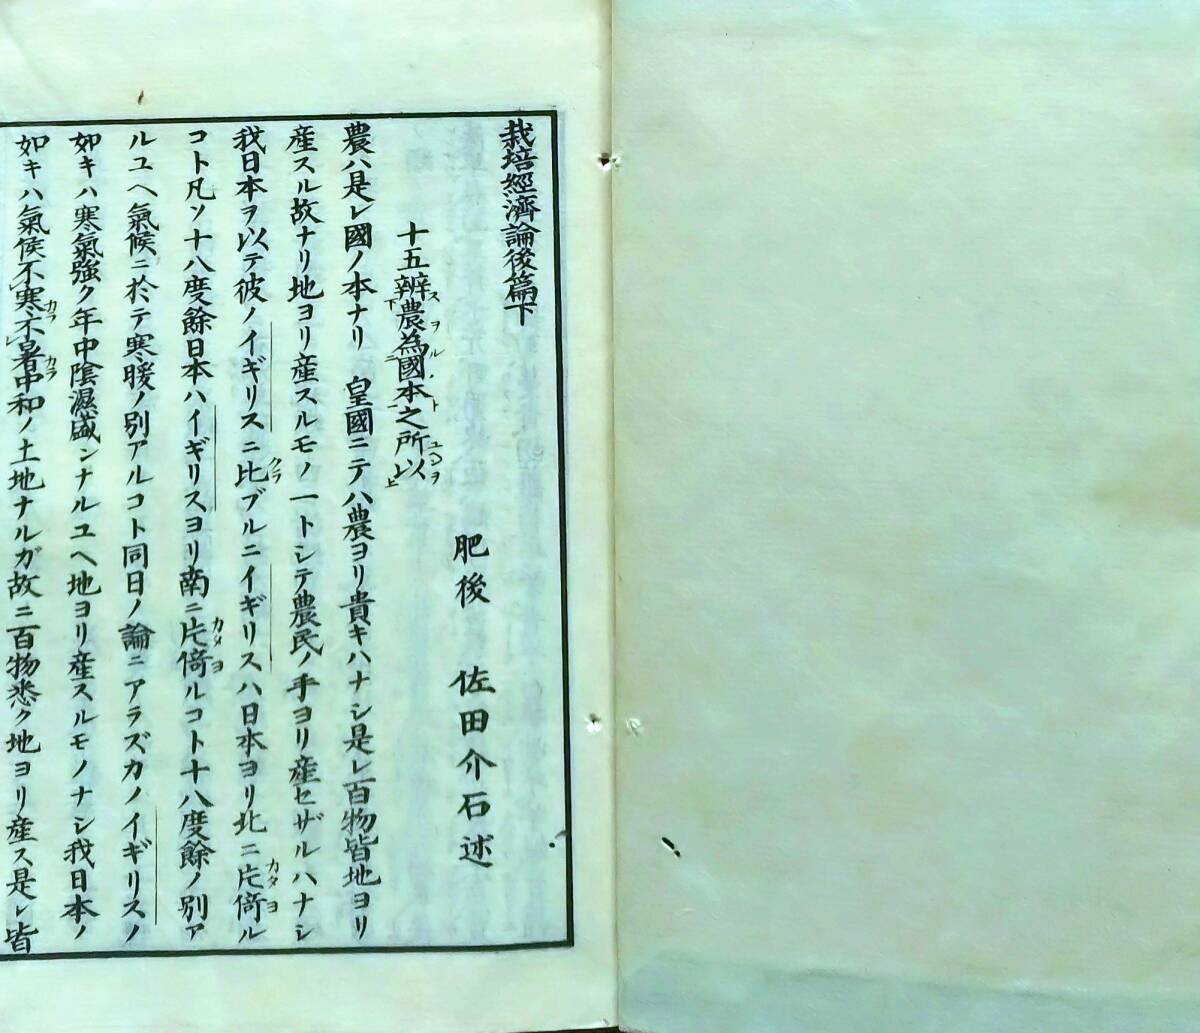 栽培經濟論後篇下
肥後 佐田介石述
十五辨農為國本之所以
農ハ是レ國ノ本ナリ 皇國ニテハ農ヨリ貴キハナシ是レ百物皆地ヨリ
産スル故ナリ地ヨリ産スルモノ一トシテ農民ノ手ヨリ産セザルハナシ
我日本ヲ以テ彼ノイギリスニ比ブルニイギリスハ日本ヨリ北ニ片倚ル
コト凡ソ十八度餘日本ハイギリスヨリ南ニ片倚ルコト十八度餘ノ別ア
ルユヘ氣候ニ於テ寒暖ノ別アルコト同日ノ論ニアラズカノイギリスノ
如キハ寒氣強ク年中陰濕盛ンナルユヘ地ヨリ産スルモノナシ我日本ノ
如キハ氣侯不寒不暑中和ノ土地ナルガ故ニ百物悉ク地ヨリ産ス是レ皆